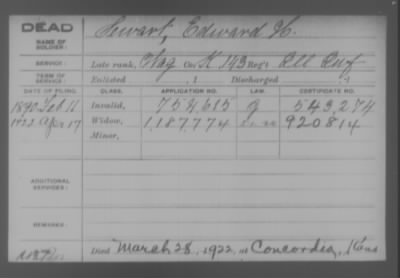 DEAD
NAME OF SOLDIER: Stewart, Edward H.
SERVICE: Late rank, Wag Co. K, 143 Reg't Ill Inf
TERM OF SERVICE: Enlisted , 1 Discharged , 1
DATE OF FILING. CLASS. APPLICATION NO. LAW. CERTIFICATE NO.
1890 Feb 11 Invalid, 754,615 543,274
1922 Apr 17 Widow, 1,187,774 920814
Minor,
ADDITIONAL SERVICES:
REMARKS:
Died March 28, 1922, at Concordia, Kans